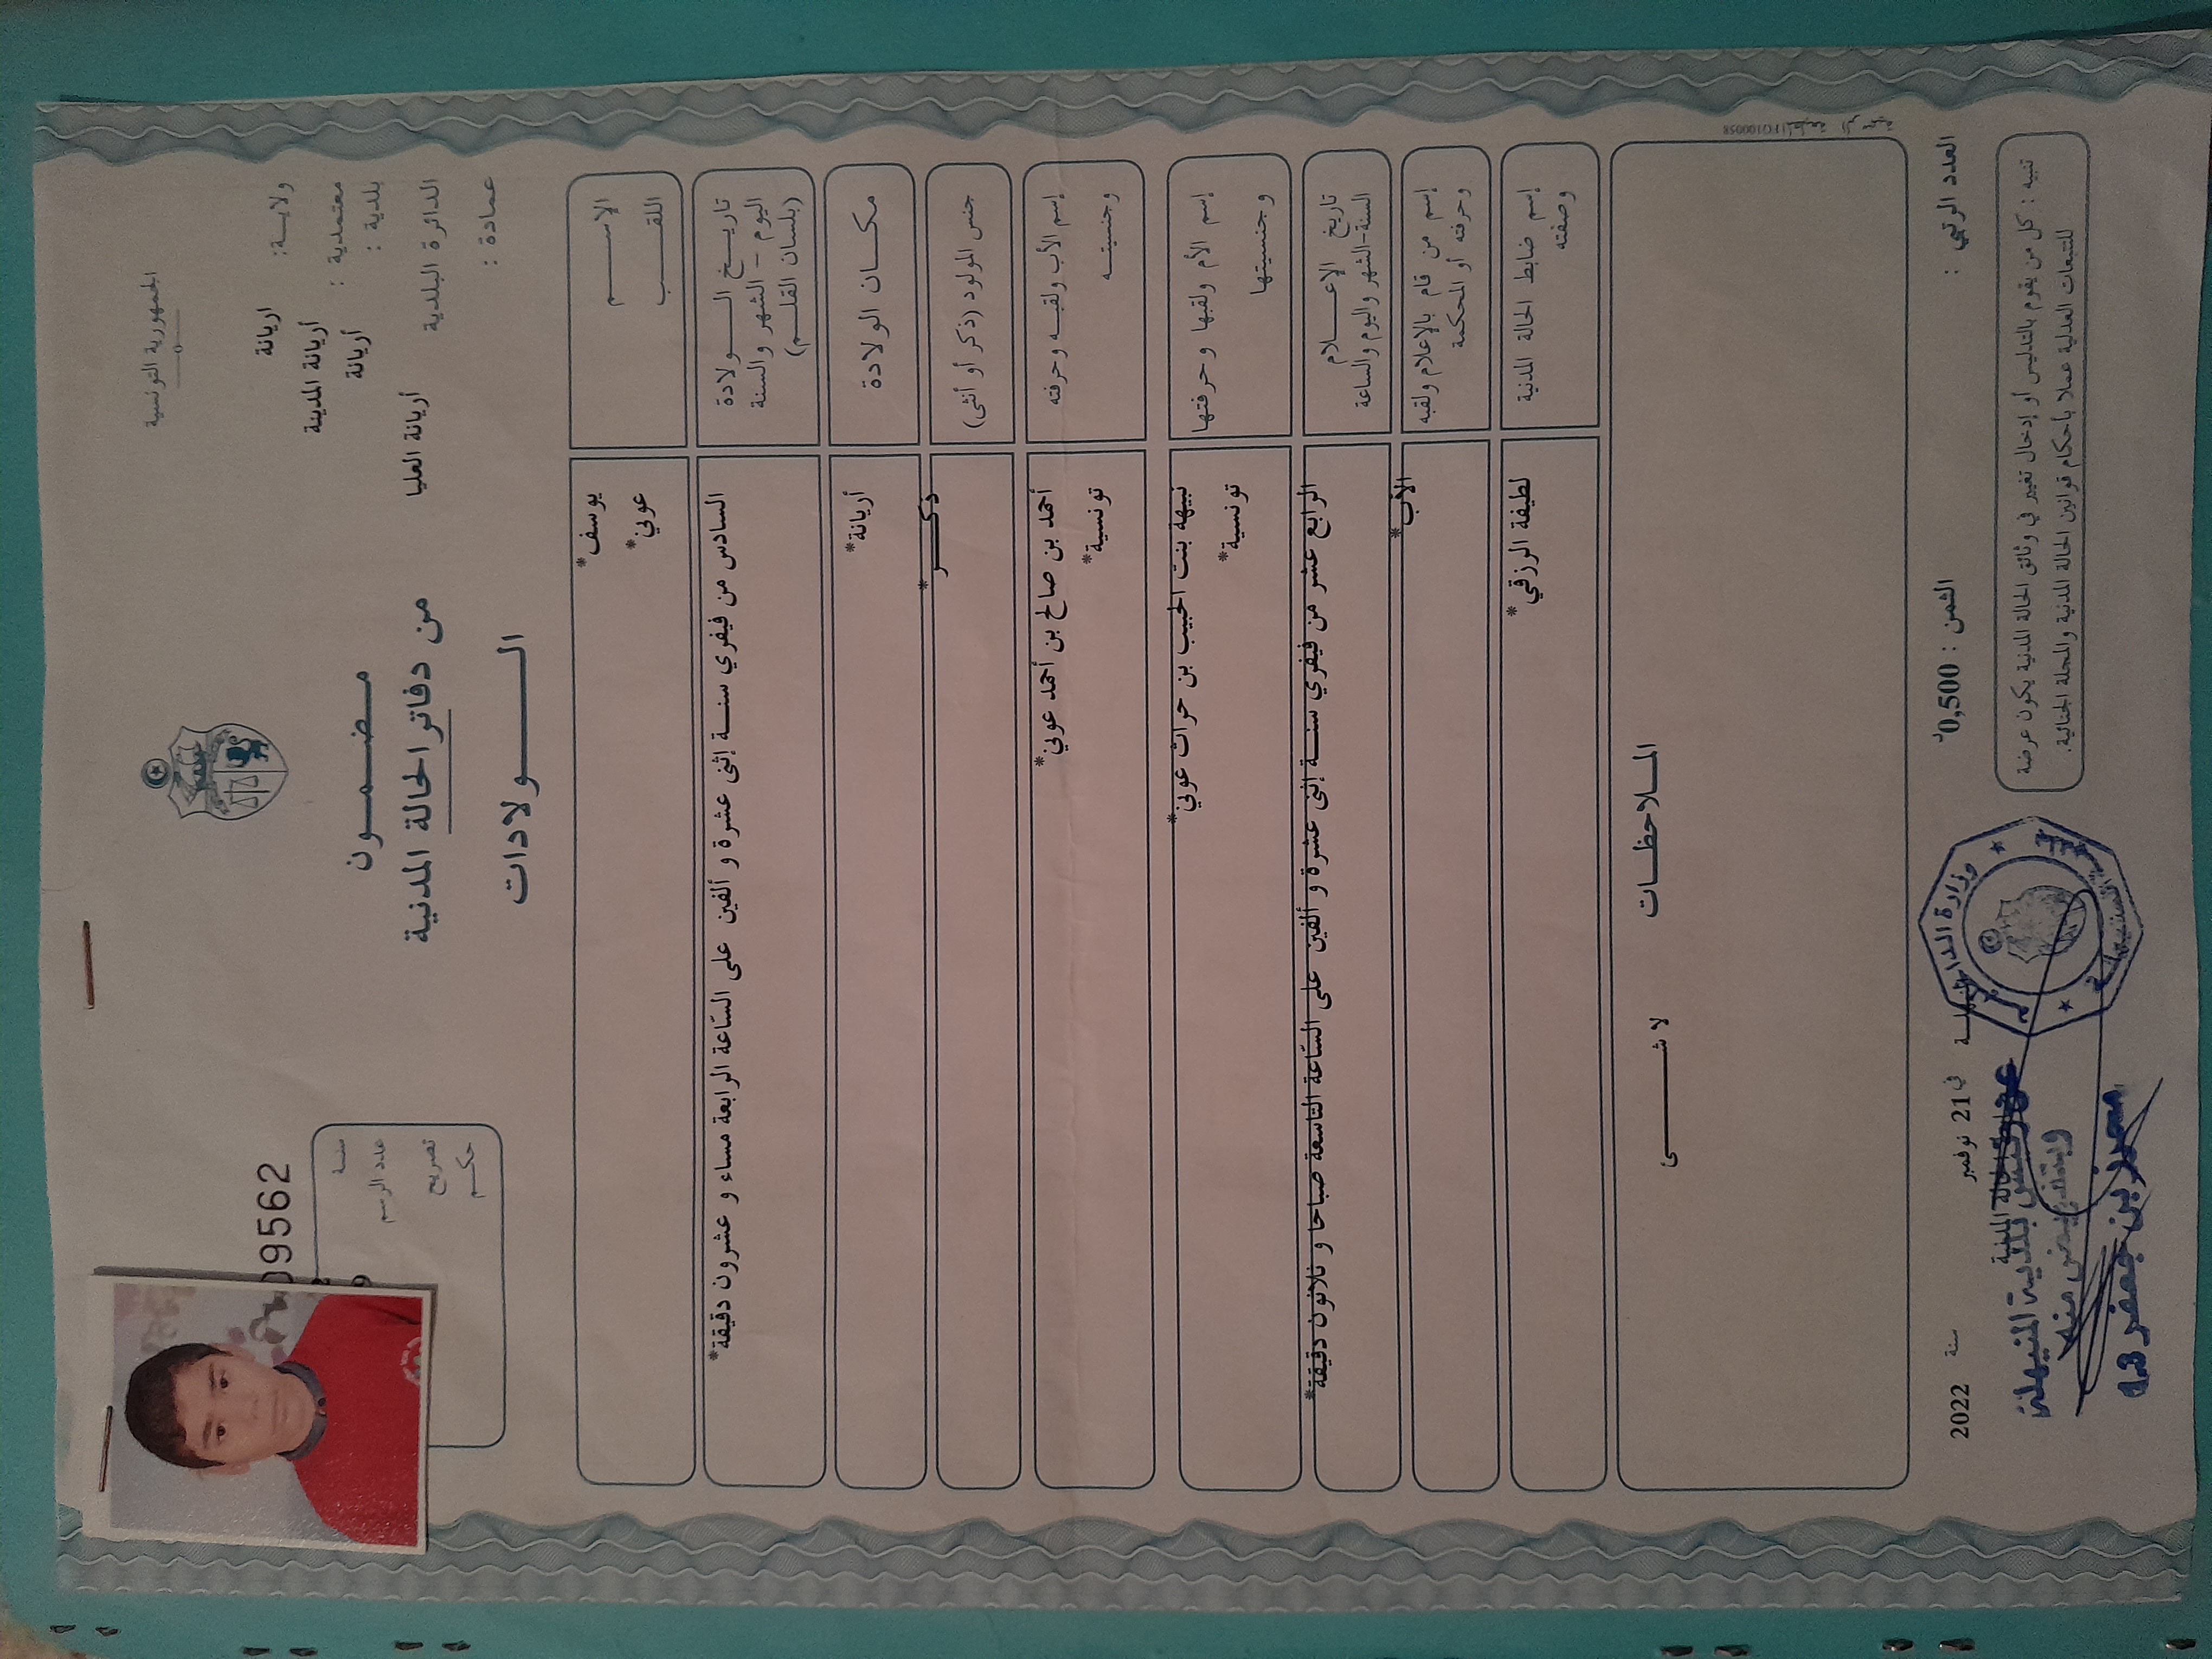 الجمهورية التونسية
ولايـــة: اريانة
معتمدية : أريانة المدينة
بلدية : أريانة
الدائرة البلدية أريانة العليا
عمادة :
مـضـمــون
من دفاتر الحالة المدنية
الــولادات
09562
سنـة
عدد الرسم
تصريح
حكـم
الإســـم يوسف*
اللقـــب عوني*
تاريــخ الـــولادة
اليوم - الشهر والسنة
(بلسان القلـم)
السادس من فيفري سنـــة إثنى عشرة و ألفين على السّاعة الرابعة مساء و عشرون دقيقة*
مكــان الولادة أريانة*
جنس المولود (ذكر أو أنثى) ذكــــر*
إسم الأب ولقبـه وحرفته أحمد بن صالح بن أحمد عوني*
وجنسيتـه تونسية*
إسم الأم ولقبها وحرفتها نبيهة بنت الحبيب بن حراث عوني*
وجنسيتها تونسية*
تاريخ الإعـــلام
السنة-الشهر واليوم والساعة
الرابع عشر من فيفري سنـــة إثنى عشرة و ألفين على السّاعة التاسعة صباحا و ثلاثون دقيقة*
إسم من قام بالإعلام ولقبه
وحرفته أو المحكمة
الأب*
إسم ضابط الحالة المدنية
وصفته
لطيفة الرزقي*
الملاحظــات
لا شـــــئ
العدد الرتبي :
الثمن : 0,500د
في 21 نوفمبر سنة 2022
ضابط الحالة المدنية
تنبيه : كل من يقوم بالتدليس أو إدخال تغيير في وثائق الحالة المدنية يكون عرضة
للتتبعات العدلية عملا بأحكام قوانين الحالة المدنية والمجلة الجنائية.
وزارة الداخلية
وبتفويض منه